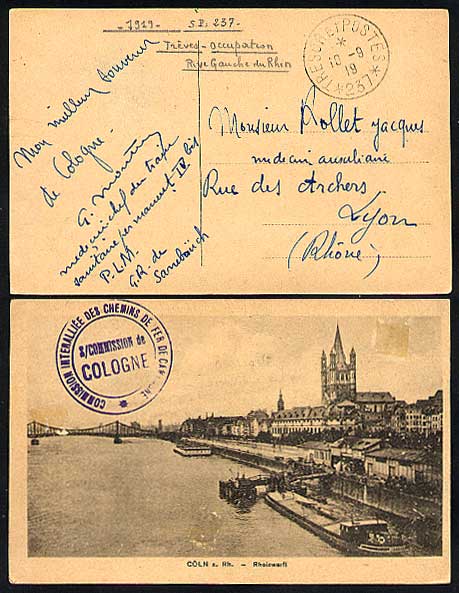 -1919- S.P. 237-
Trèves-Occupation
Rive Gauche du Rhin
* TRESOR ET POSTES *
*
10-9
19
* 237 *
Mon meilleur souvenir
de Cologne.
G.
médecin chef du train
sanitaire permanent IV bis
P.L.M.
G.R. de
Sarrebrück
Monsieur Rollet Jacques
médecin auxiliaire
Rue des Archers
Lyon
(Rhône)
COMMISSION INTERALLIÉE DES CHEMINS DE FER DE CAMPAGNE
S/COMMISSION de
COLOGNE
CÖLN a. Rh. - Rheinwerft